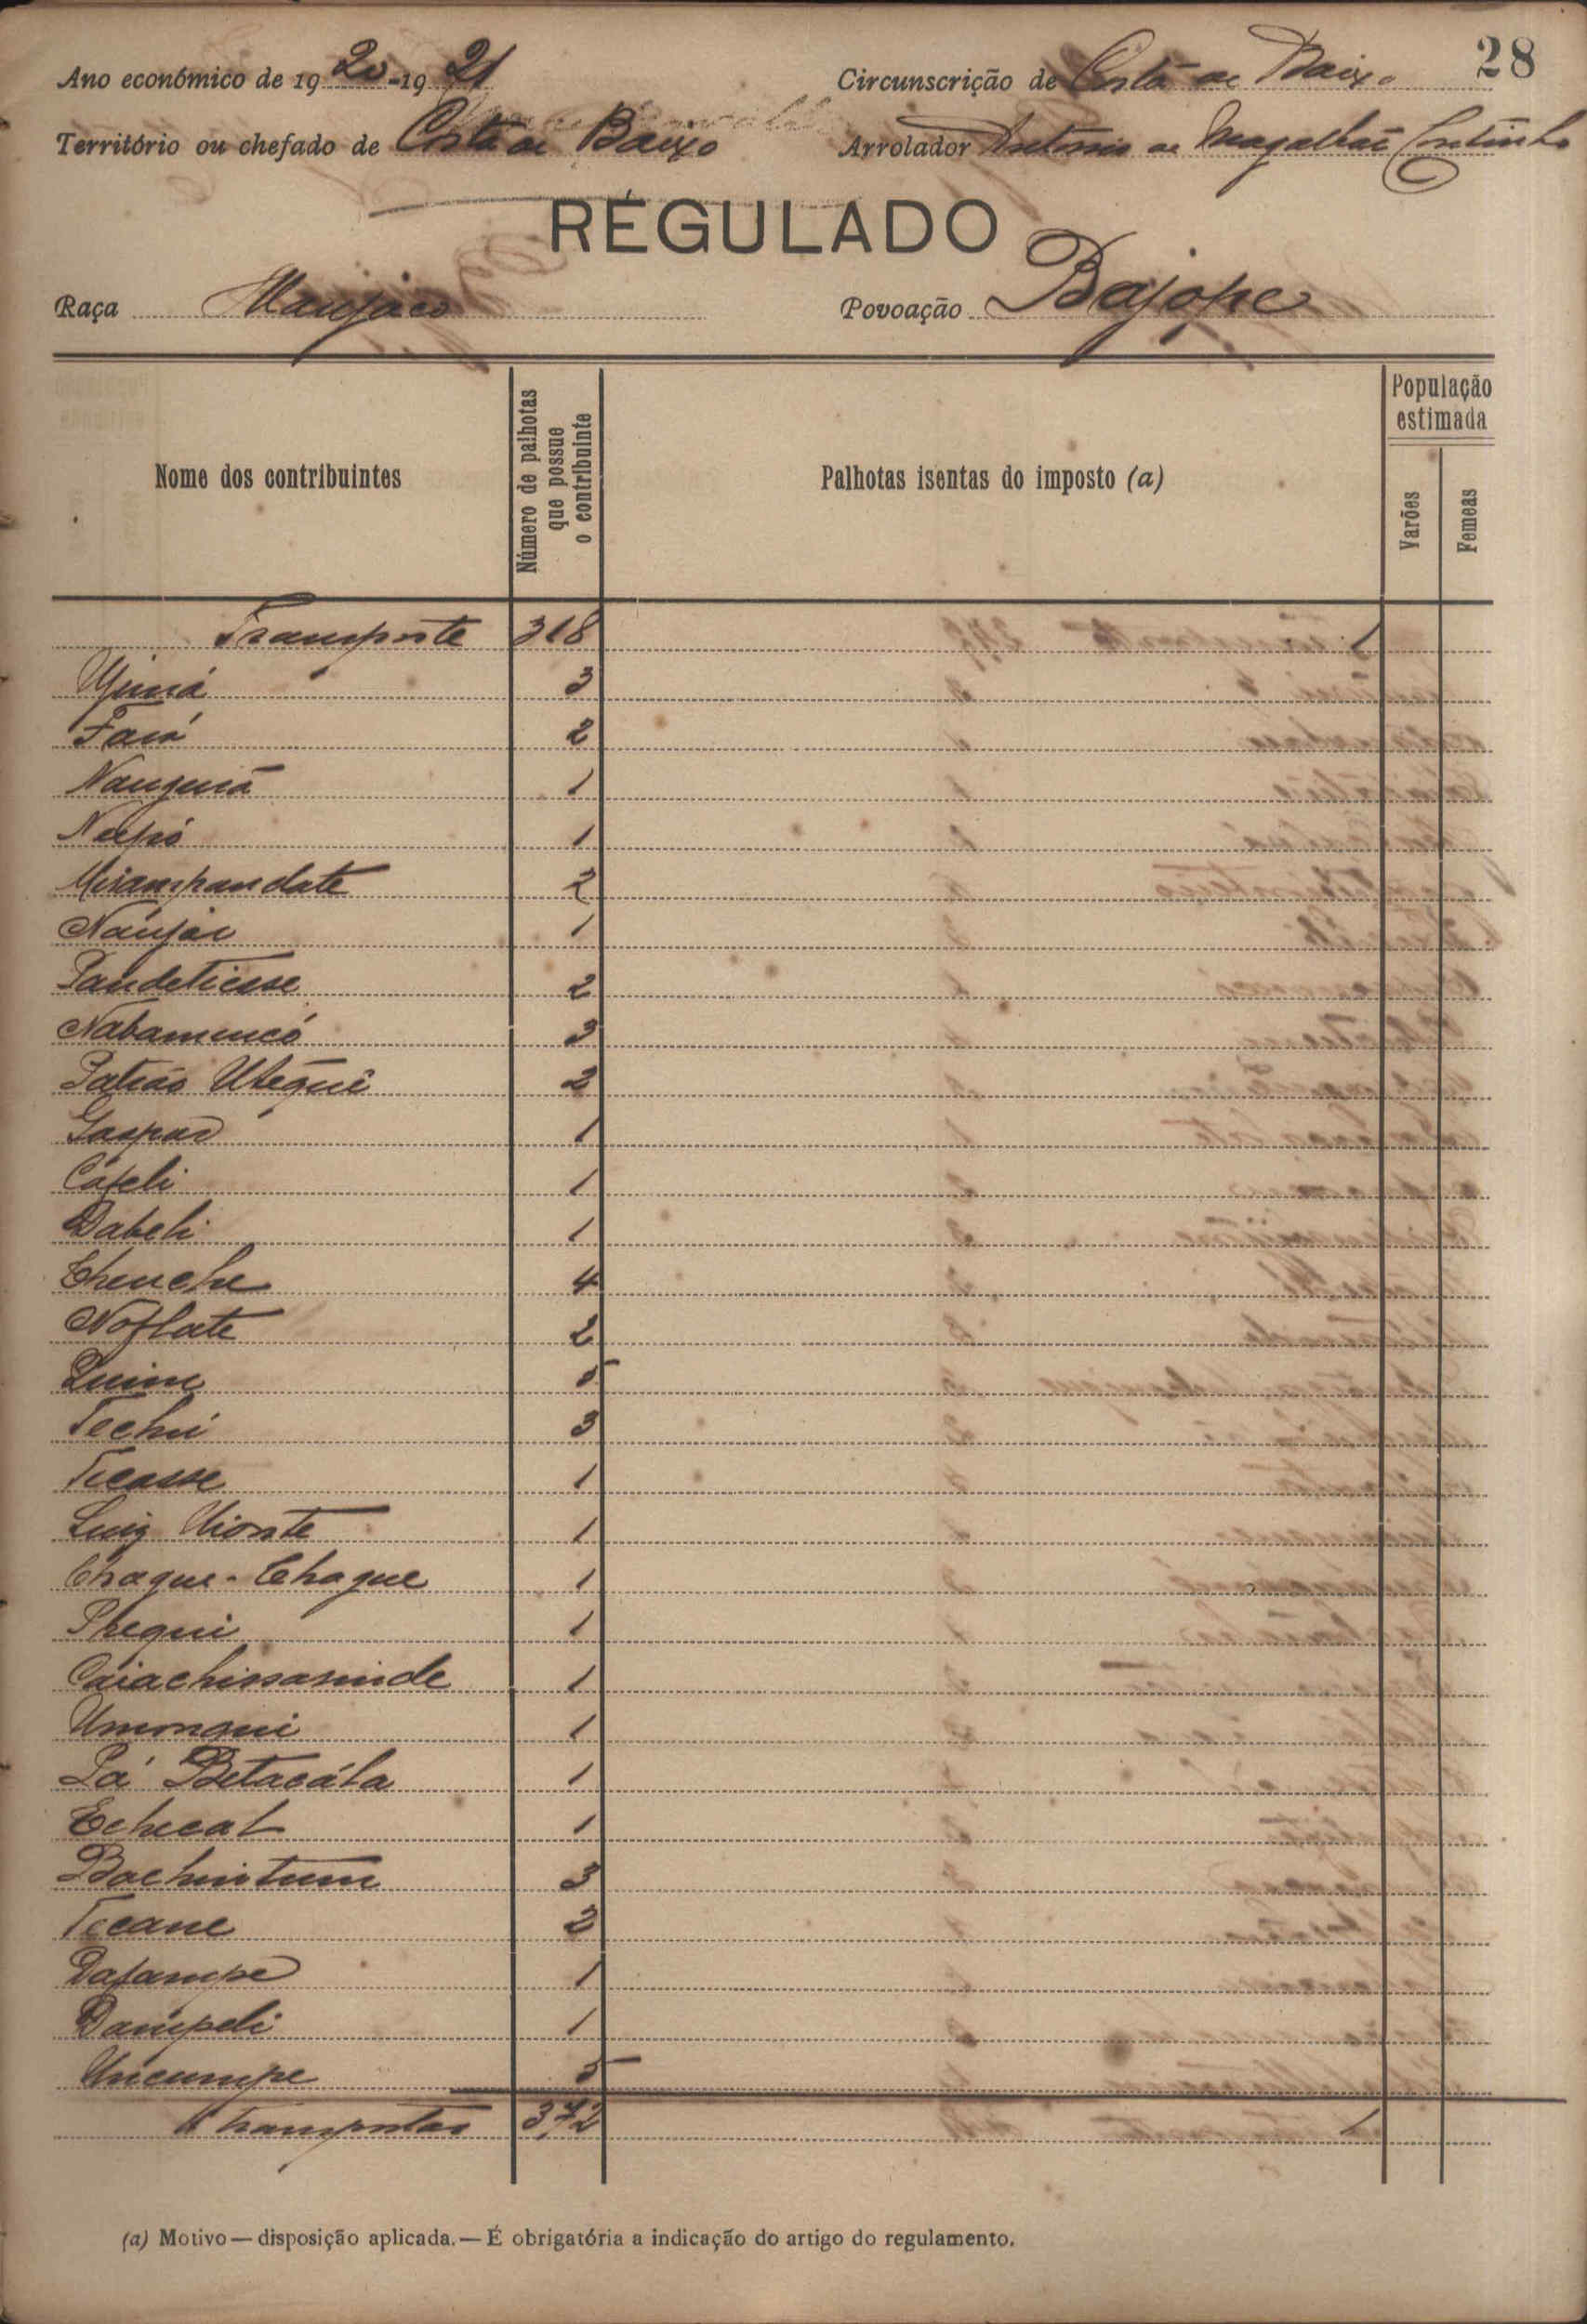 28
Ano económico de 1920-1921 Circunscrição de Costa de Baixo
Território ou chefado de Costa de Baixo Arrolador Antonio de Magalhães Coutinho
REGULADO
Raça Manjaco Povoação Bajope
Nome dos contribuintes
Número de palhotas que possue o contribuinte
Palhotas isentas do imposto (a)
População estimada
Varões
Femeas
Transporte 318 1
3
2
1
1
2
1
2
Nabamencó 3
2
Gaspar 1
Cafeli 1
Dabeli 1
Chenche 4
Noflate 2
5
Techú 3
Ticasse 1
Luiz 1
Chaque-Chaque 1
Prequi 1
Caiachissaminde 1
Umonqui 1
Pá Betacála 1
Echecal 1
Bachintum 3
Tecane 2
Dafampe 1
Dampeli 1
Uncumpe 5
A transportar 372 1
(a) Motivo — disposição aplicada. — É obrigatória a indicação do artigo do regulamento.